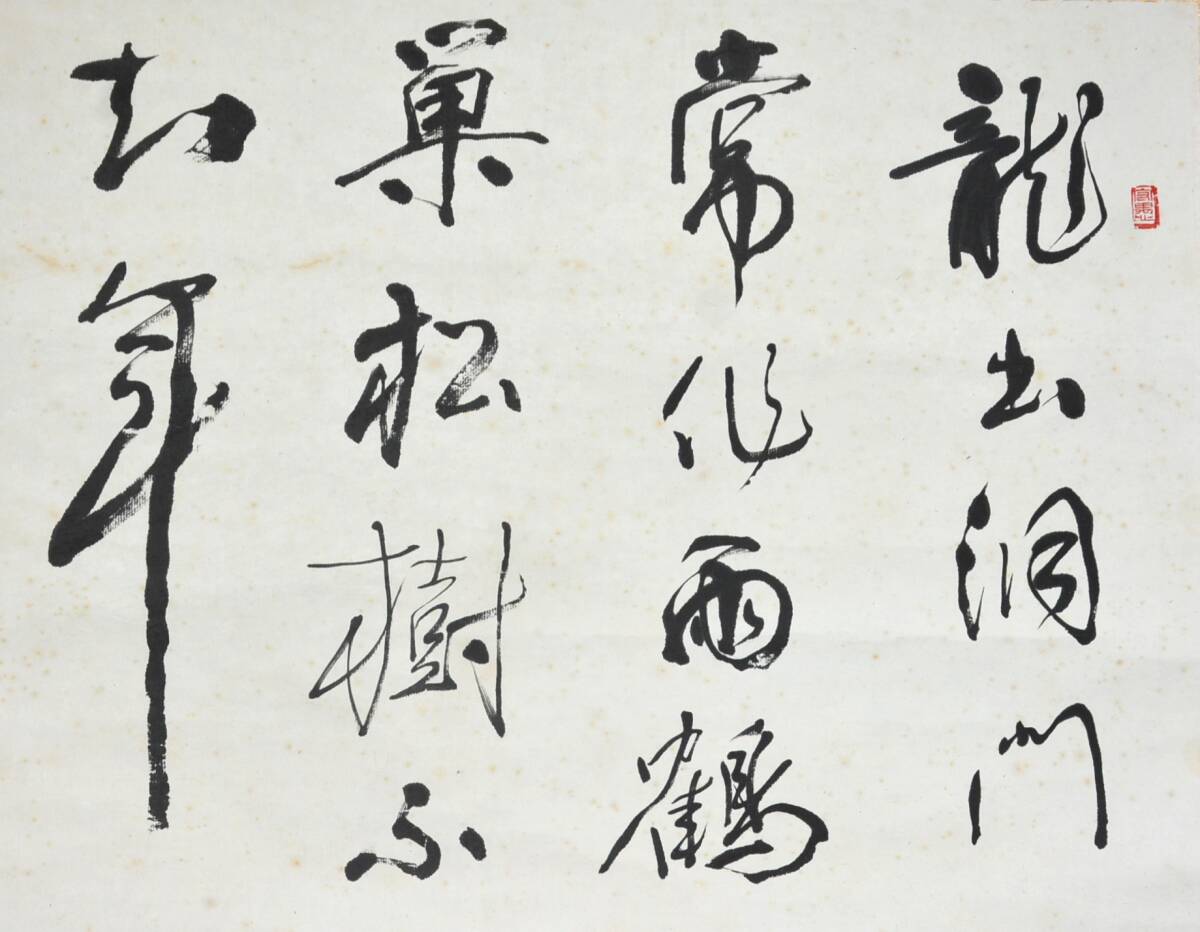 龍出洞門
常作雨鶴
巢松樹不
知年